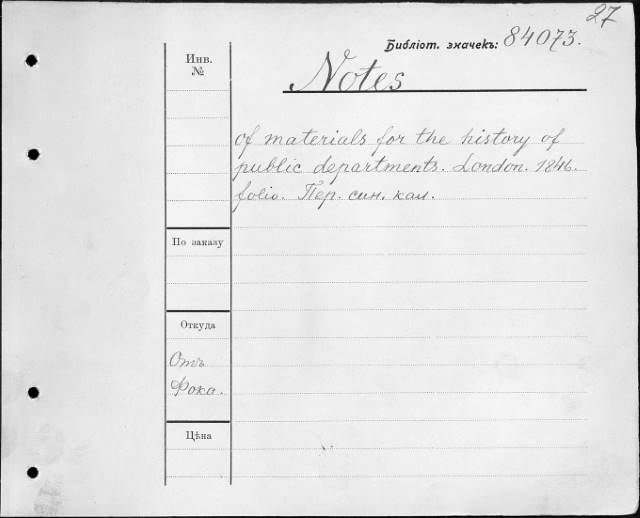 27
Библіот. значекъ: 84073.
Инв.
№
Notes
of materials for the history of
public departments. London. 1846.
folio. Пер. син. кал.
По заказу
Откуда
Отъ
Фока.
Цѣна